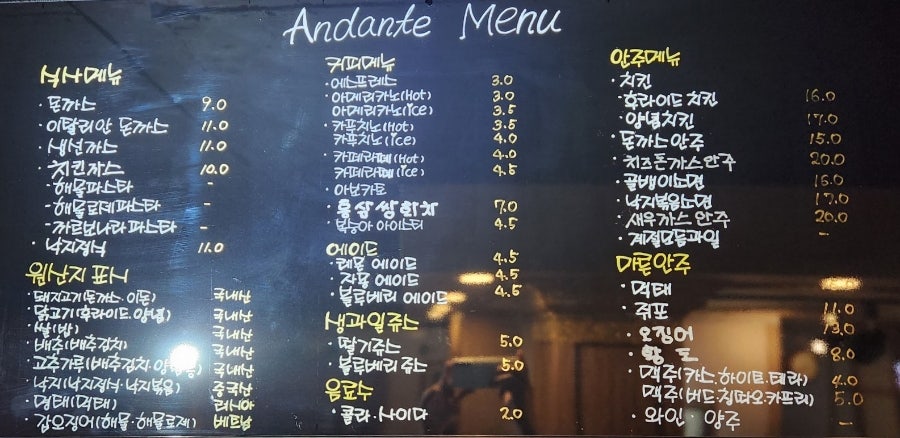 Andante Menu
식사메뉴
· 돈까스 9.0
· 이탈리안 돈까스 11.0
· 생선까스 11.0
· 치킨까스 10.0
· 해물파스타 -
- 해물로제파스타 -
- 까르보나라 파스타 -
· 낙지정식 11.0
원산지 표시
· 돼지고기(돈까스·이돈) 국내산
· 닭고기(후라이드·양념) 국내산
· 쌀(밥) 국내산
· 배추(배추김치) 국내산
· 고춧가루(배추김치·양 국내산
· 낙지(낙지정식·낙지볶음) 중국산
· 명태(먹태) 러시아
· 갑오징어(해물·해물로제) 베트남
커피메뉴
· 에스프레스 3.0
· 아메리카노(Hot) 3.0
아메리카노(ice) 3.5
· 카푸치노(Hot) 3.5
카푸치노(ice) 4.0
· 카페라떼(Hot) 4.0
카페라떼(ice) 4.5
· 아보카드
· 홍삼쌍화차 7.0
· 복숭아 아이스티 4.5
에이드
· 레몬 에이드 4.5
· 자몽 에이드 4.5
· 블루베리 에이드 4.5
생과일쥬스
· 딸기쥬스 5.0
· 블루베리 쥬스 5.0
음료수
· 콜라·사이다 2.0
안주메뉴
· 치킨
· 후라이드 치킨 16.0
· 양념치킨 17.0
· 돈까스 안주 15.0
· 치즈돈까스 안주 20.0
· 골뱅이소면 15.0
· 낙지볶음소면 17.0
· 새우까스 안주 20.0
· 계절모듬과일 -
마른안주
· 먹태
· 쥐포 11.0
· 오징어 13.0
· 황도 8.0
· 맥주(카스·하이트·테라) 4.0
맥주(버드·칭따오·카프리) 5.0
· 와인·양주 -